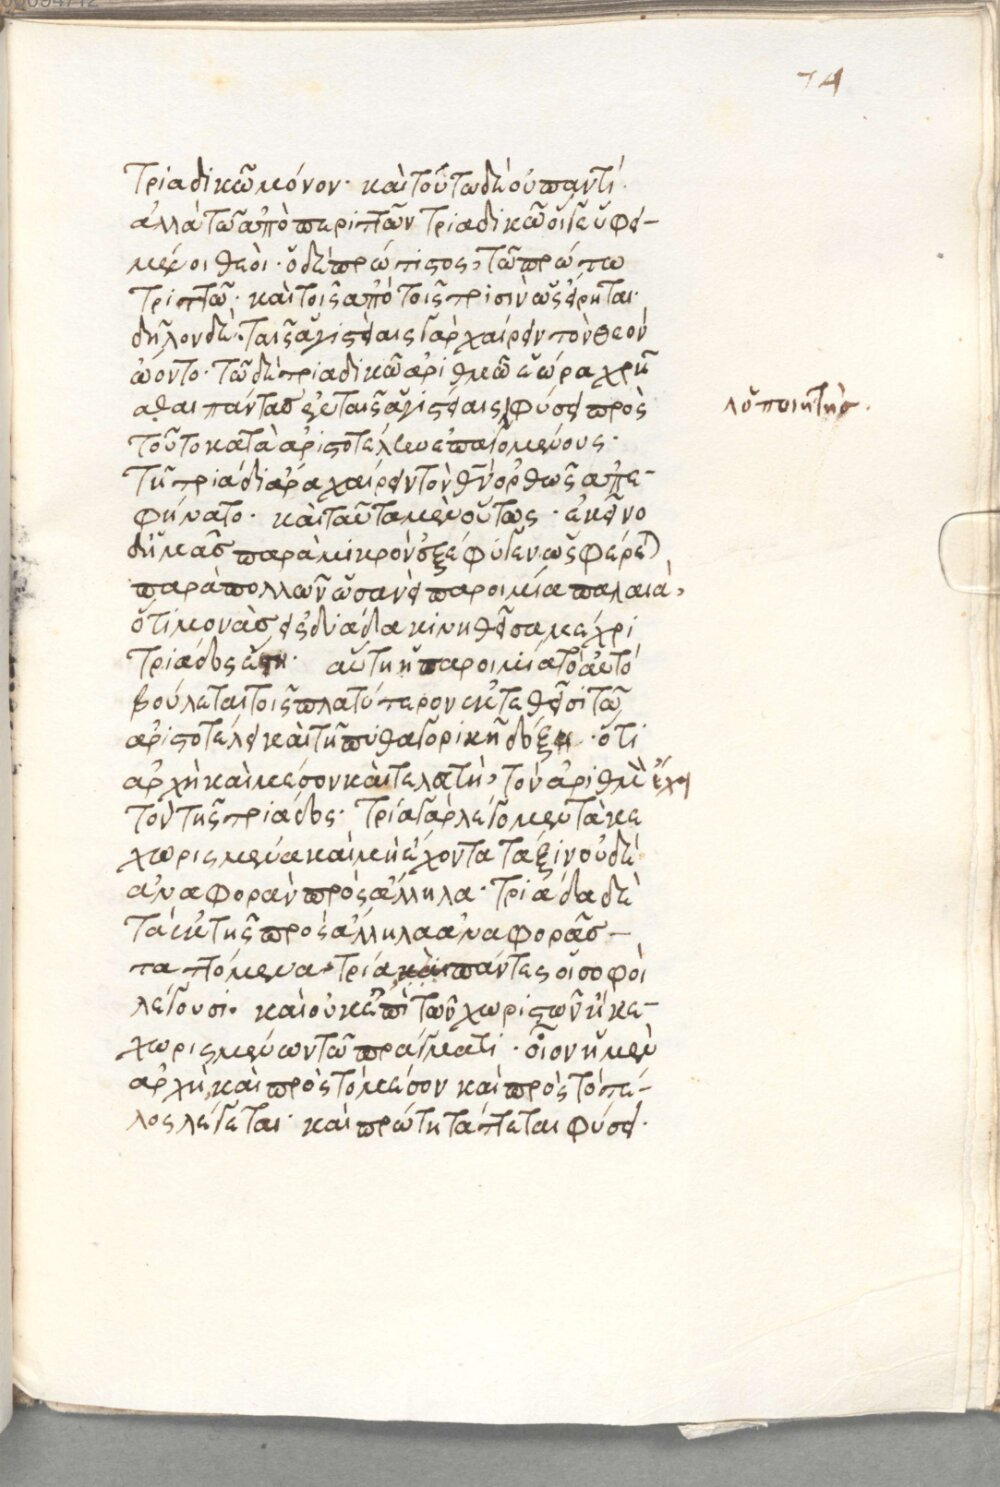 74
τριαδικῶ μόνον· καὶ τούτω δὲ οὐ παντί·
ἀλλὰ τῶ ἀπὸ περιττῶν τριαδικῶ οἱ γε ὑφει-
μένοι θεοί· ὁ δὲ πρώτιστος, τῶ πρώτω
τριττῶ· καὶ τοῖς ἀπὸ τοῖς τρισὶν ὡς εἴρηται·
δῆλον δέ· ταῖς ἁγιστείαις γὰρ χαίρειν τὸν θεὸν
ὤοντο· τῶ δὲ τριαδικῶ ἀριθμῶ ἑώρα χρῆ
σθαι πάντας ἐν ταῖς ἁγιστείαις φύσει πρὸς
λος ποιητὴς.
τοῦτο κατὰ ἀριστοτέλην ἐπαγομένους·
τῆ τριάδι ἄρα χαίρειν τὸν θν ὀρθῶς ἀπε-
φήνατο· καὶ ταῦτα μὲν οὕτως· ἐκεῖνο
δ' ἡμᾶς παρὰ μικρὸν ἐξέφυγεν ὡς φέρε
παρὰ πολλῶν ὡσανεὶ παροιμία παλαιά,
ὅτι μονὰς εἰς δυάδα κινηθεῖσα μέχρι
τριάδος ἔστη· αὕτη ἡ παροιμία τὸ αὐτὸ
βούλεται τοῖς πλατύτερον ἐκτεθεῖσι τῶ
ἀριστοτέλει καὶ τῆ πυθαγορικῆ δόξη· ὅτι
ἀρχὴ καὶ μέσον καὶ τελευτὴ, τὸν ἀριθμὸν ἔχει
τὸν τῆς τριάδος· τρία γὰρ λέγομεν τὰ κε
χωρισμένα καὶ μὴ ἔχοντα τάξιν οὐδὲ
ἀναφορὰν πρὸς ἄλληλα· τριάδα δὲ
τὰ ἐκ τῆς πρὸς ἄλληλα ἀναφορᾶς
ταττόμενα· τρία καὶ πάντες οἱ σοφοὶ
λέγουσι· καὶ οὐκ ἐπὶ τῶν χωριστῶν ἢ κε-
χωρισμένων τῶ πράγματι· οἷον ἡ μὲν
ἀρχὴ, καὶ πρὸς τὸ μέσον καὶ πρὸς τὸ τέ-
λος λέγεται· καὶ πρώτη τάττεται φύσει·